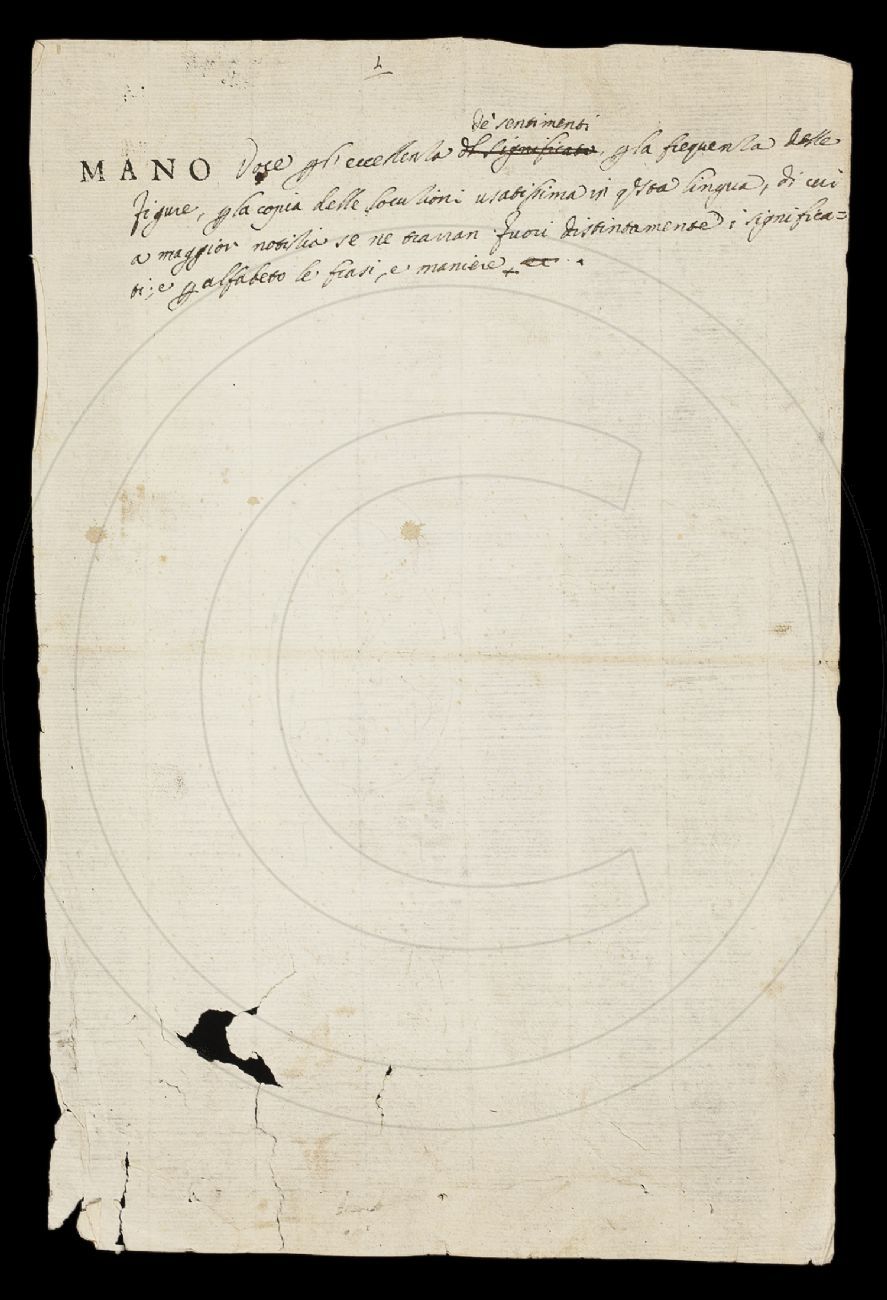 L
de' sentimenti
MANO Voce p l'eccellenza del significato, p la frequenza delle
figure, p la copia delle locuzioni usatissima in qsta lingua, di cui
a maggior notizia se ne trarran fuori distintamente i significa=
ti; e p alfabeto le frasi, e maniere